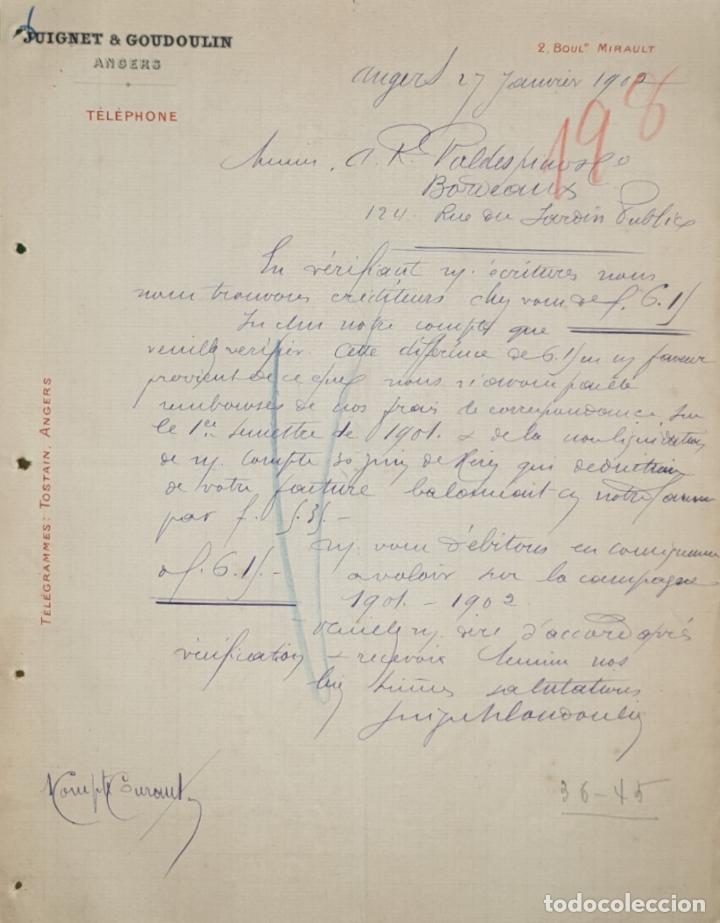 JUIGNET & GOUDOULIN
ANGERS
TÉLÉPHONE
2, BOULD MIRAULT
TÉLÉGRAMMES: TOSTAIN, ANGERS
Angers 27 Janvier 1902
198
A. R. Valdespino & Co
Bordeaux
124 Rue du Jardin Public
En vérifiant n/. écritures nous
nous trouvons créditeurs chez vous de f. 6.15
notre compte que
veuillez vérifier. Cette différence de 6.15 en n/ faveur
provient de ce que nous n'avons pas été
remboursés de nos frais de correspondance sur
le 1er semestre de 1901. & de la
de n/. compte 30 juin de qui déduction
de votre facture balançait en notre faveur
par f. 5.35.-
n/. vous débitons en conséquence
de f. 6.15.- à valoir sur la campagne
1901.-1902
Veuillez n/. dire d'accord après
vérification & recevoir nos
salutations
Juignet & Goudoulin
Compte Courant
36-45
todocoleccion